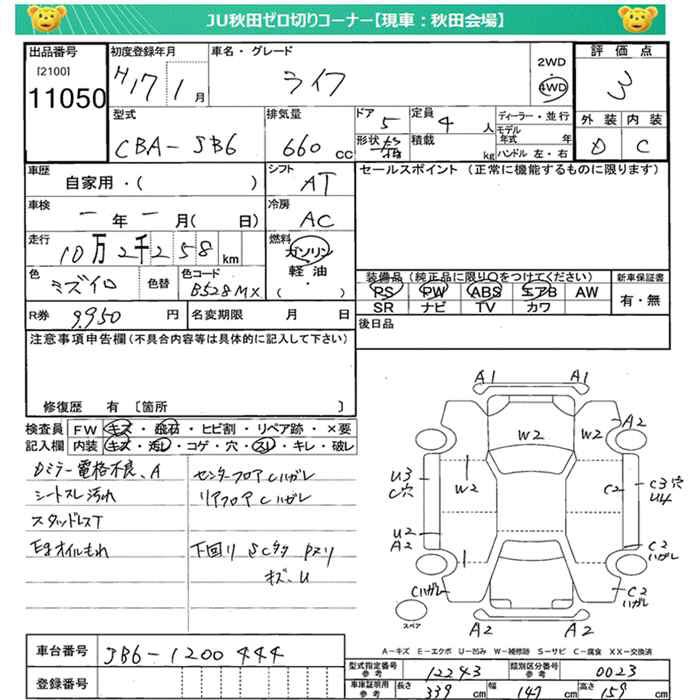 JU秋田ゼロ切りコーナー【現車：秋田会場】
出品番号 初度登録年月 車名・グレード 2WD・4WD 評価点
[2100] H17 1月 ライフ 3
11050
型式 排気量 ドア 5 定員 4 人 ディーラー・並行 外装 内装
CBA-JB6 660 cc 形状 積載 kg モデル年式 年 D C
ハンドル 左・右
車歴 シフト セールスポイント（正常に機能するものに限ります）
自家用・（ ） AT
車検 冷房
一年一月（ 日） AC
走行 燃料
10万2千258km ガソリン
軽油
・（ ）
色 色替 色コード 装備品（純正品に限り○をつけてください） 新車保証書
ミズイロ B528MX PS PW ABS エアB AW 有・無
SR ナビ TV カワ
R券 9,950円 名変期限 月 日 後日品
注意事項申告欄（不具合内容等は具体的に記入して下さい）
修復歴 有 〔箇所 〕
検査員 FW キズ・飛石・ヒビ割・リペア跡・×要
記入欄 内装 キズ・汚レ・コゲ・穴・スリ・キレ・破レ
Dミラー電格不良、A センターフロアCハガレ
シートスレ汚れ リアフロアCハガレ
スタッドレスT
Egオイルもれ 下回り SCタク Pスリ
キズ、U
A1 A1
W2 W2 A2
U3 C穴 W2 C2 C3穴 U4
U2 A2 C2 ハガレ
Cハガレ C2 ハガレ
スペア A2 A2
A-キズ E-エクボ U-凹み W-補修跡 S-サビ C-腐食 XX-交換済
車台番号 JB6-1200444
型式指定番号 参考 12243 類別区分番号 参考 0023
登録番号 車庫証明用 参考 長さ 339 cm 幅 147 cm 高さ 159 cm